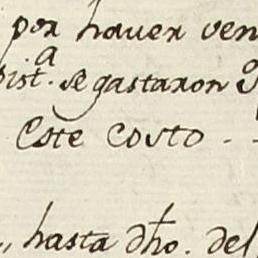 por haver ven
pist.ª se gastaron
Este costo
hasta dho. del